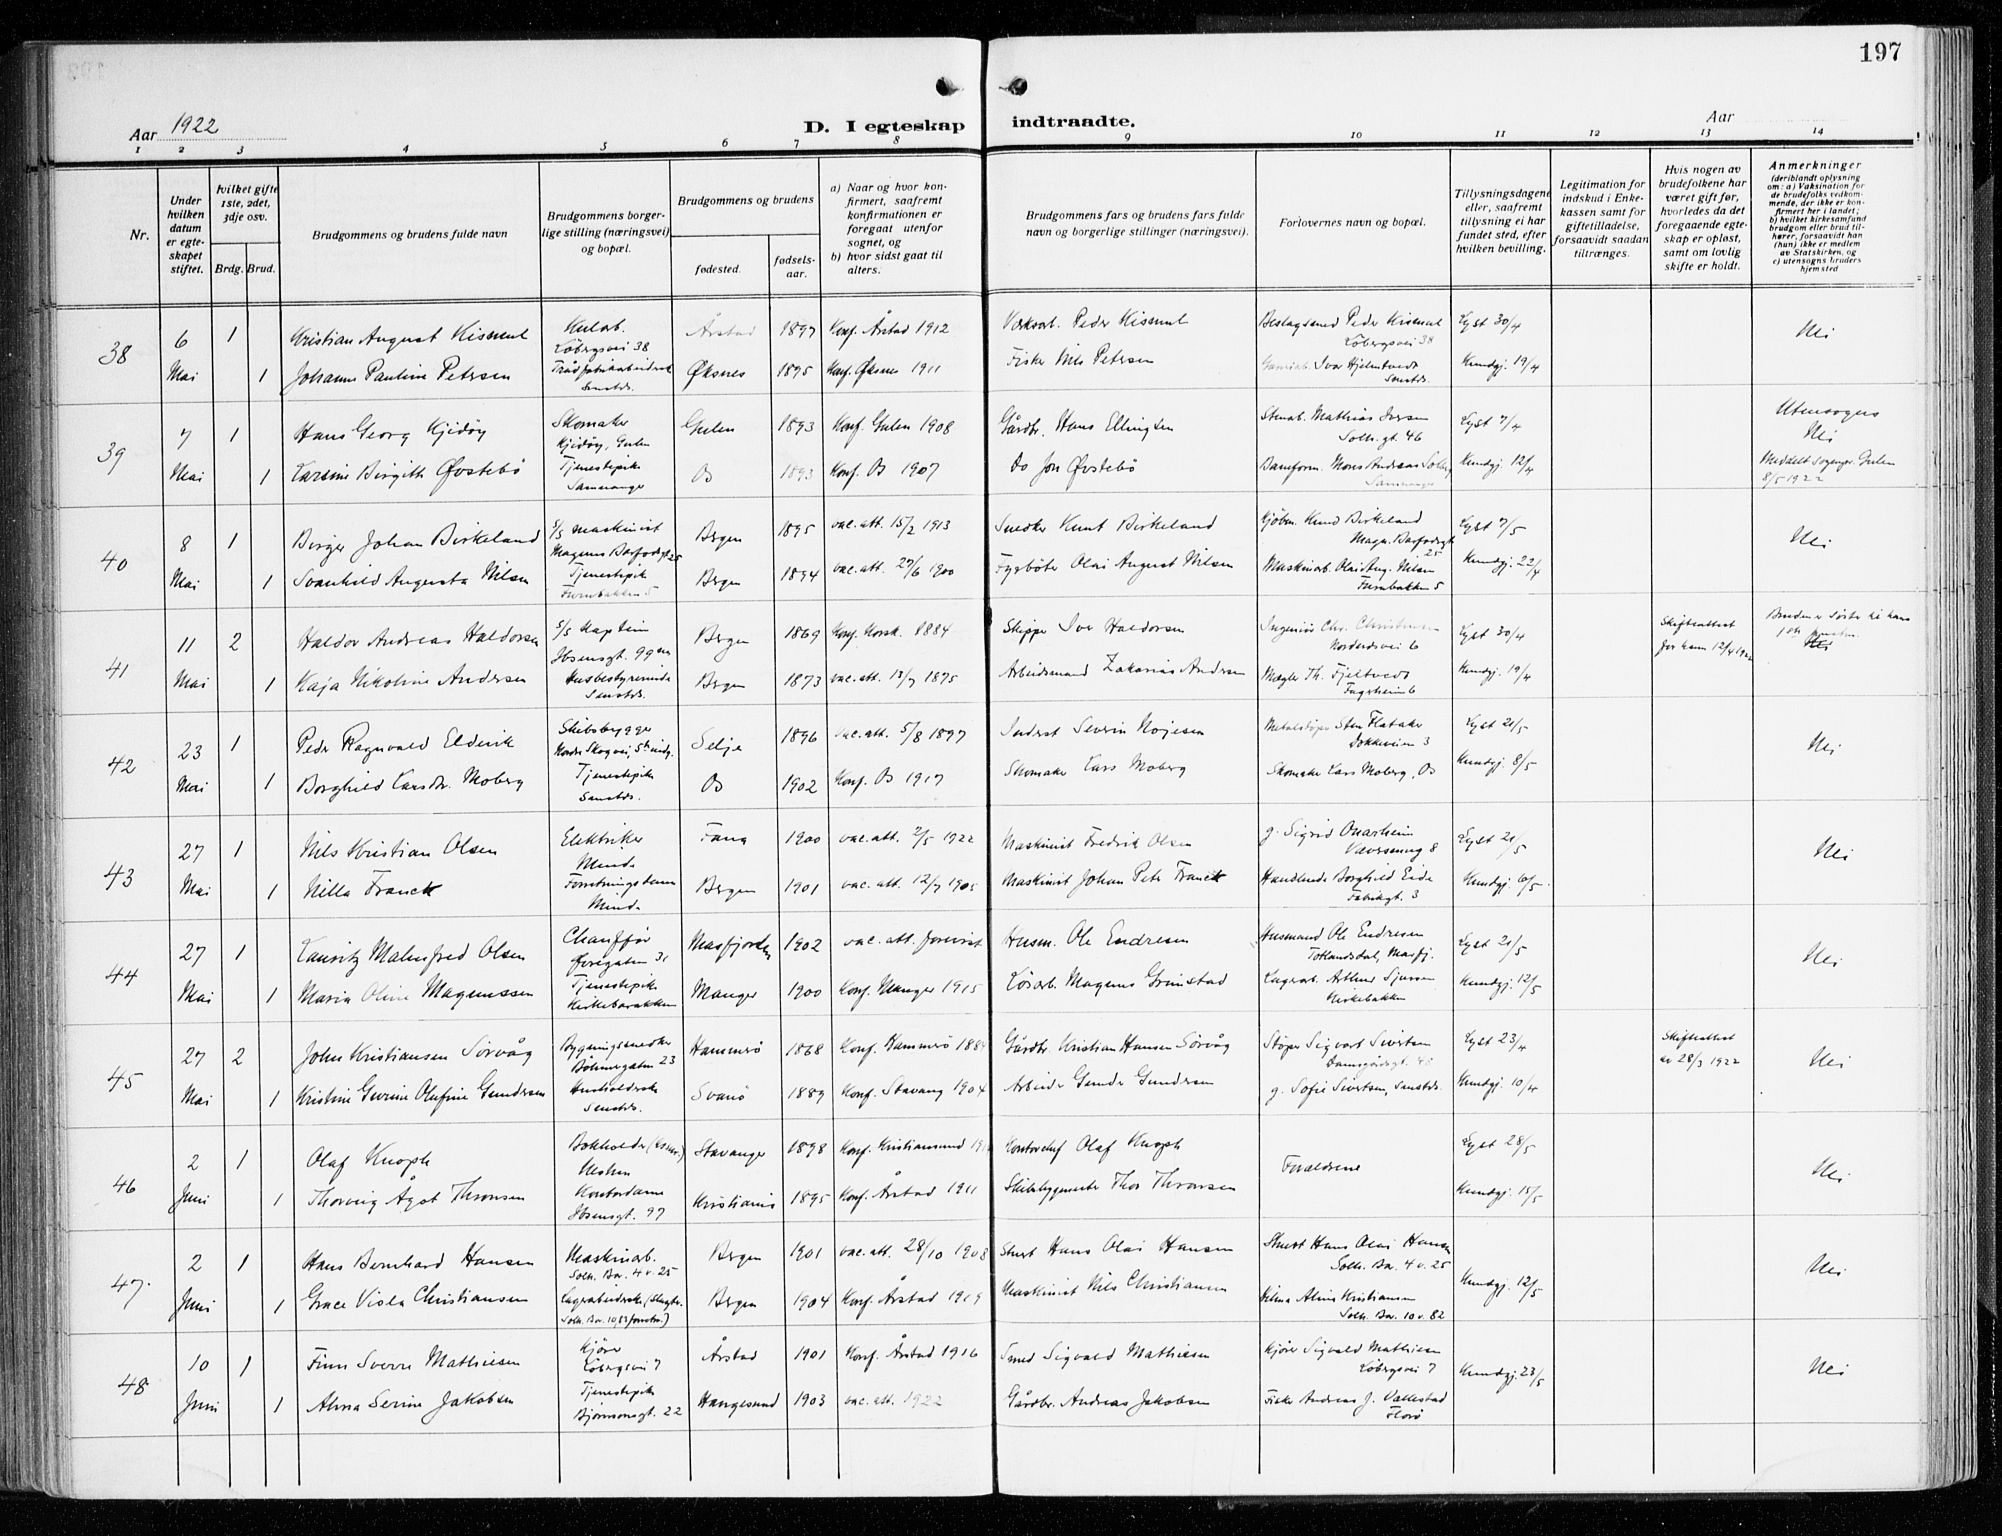 197
Aar 1922
D. I egteskap indtraadte.
Aar
1 2 3 4 5 6 7 8 9 10 11 12 13 14
Nr.
Under hvilken datum er egteskapet stiftet.
hvilket gifte 1ste, 2det, 3dje osv.
Brdg. Brud.
Brudgommens og brudens fulde navn
Brudgommens borgerlige stilling (næringsvei) og bopæl.
Brudgommens og brudens
fødested. fødselsaar.
a) Naar og hvor konfirmert, saafremt konfirmationen er foregaat utenfor sognet, og
b) hvor sidst gaat til alters.
Brudgommens fars og brudens fars fulde navn og borgerlige stillinger (næringsvei).
Forlovernes navn og bopæl.
Tillysningsdagene eller, saafremt tillysning ei har fundet sted, efter hvilken bevilling.
Legitimation for indskud i Enkekassen samt for giftetilladelse, forsaavidt saadan tiltrænges.
Hvis nogen av brudefolkene har været gift før, hvorledes da det foregaaende egteskap er opløst, samt om lovlig skifte er holdt.
Anmerkninger
(deriblandt oplysning om: a) Vaksination for de brudefolks vedkommende, der ikke er konfirmert her i landet;
b) hvilket kirkesamfund brudgom eller brud tilhører, forsaavidt han (hun) ikke er medlem av Statskirken, og
c) utensogns bruders hjemsted
38 6 Mai 1 Kristian August Kismul Løbergsvei 38 Årstad 1897 Konf. Årstad 1912 Peder Kismul Beslagsmed Peder Kismul Løbergsvei 38 Lyst 30/4 Nei
1 Johanne Pauline Petersen Samstds. Øksnes 1895 Konf. Øksnes 1911 Fisker Nils Petersen Ivar Hjelmtvedt Samstds. Kundgj. 19/4
39 7 Mai 1 Hans Georg Kjidøy Skomaker Kjidøy, Gulen Gulen 1893 Konf. Gulen 1908 Gårdbr. Hans Ellingsen Mathias Iversen Solh. gt. 46 Lyst 7/4 Utensogns Nei
1 Karsine Birgith Øvstebø Tjenestepike Samnanger Os 1893 Konf. Os 1907 Do Jon Øvstebø Mons Andreas Solberg Samnanger Kundgj. 12/4 Meddelt sogner. Gulen 8/5 1922
40 8 Mai 1 Birger Johan Birkeland S/S Maskinist Magnus Barfodsgt 25 Bergen 1895 vac. att. 15/2 1913 Snedker Knut Birkeland Kjøbm. Knud Birkeland Magn. Barfodsgt 25 Lyst 7/5 Nei
1 Svanhild Augusta Nilsen Tjenestepike Furubakken 5 Bergen 1894 vac. att. 27/6 1900 Fyrbøter Olai August Nilsen Maskinarb. Olai Aug. Nilsen Furubakken 5 Kundgj. 22/4
41 11 Mai 2 Haldor Andreas Haldorsen S/S Kaptein Ibsensgt. 99 Bergen 1869 Konf. Korsk. 1884 Skipper Iver Haldorsen Ingeniør Chr. Christensen 6 Lyst 30/4 Skifteattest for ham 12/4 1922
1 Kaja Nikoline Andersen Husbestyrerinde Samstds. Bergen 1873 vac. att. 13/7 1875 Arbeidsmand Zakarias Andersen Mægler Th. Fjeltvedt Fagerheim 6 Kundgj. 19/4
42 23 Mai 1 Peder Ragnvald Eldevik Skibsbygger Selje 1896 vac. att. 5/8 1897 Severin Nøjesen Dokkeveien 3 Lyst 21/5 Nei
1 Borghild Larsdtr. Moberg Tjenestepike Samstds. Os 1902 Konf. Os 1917 Skomaker Lars Moberg Skomaker Lars Moberg, Os Kundgj. 8/5
43 27 Mai 1 Nils Kristian Olsen Elektriker Minde Fana 1900 vac. att. 2/5 1922 Maskinist Fredrik Olsen g. Sigrid Onarheim 8 Lyst 21/5 Nei
1 Nilla Franck Forretningsdame Minde Bergen 1901 vac. att. 12/7 1905 Maskinist Johan Peter Franck Borghild Eide Fabrikgt. 3 Kundgj. 6/5
44 27 Mai 1 Lauritz Malmfred Olsen Chauffør Øvregaten 31 Masfjorden 1902 vac. att. forevist Husm. Ole Endresen Husmand Ole Endresen Totlandsdal, Masfj. Lyst 21/5 Nei
1 Maria Oline Magnussen Tjenestepike Kirkebarakken Manger 1900 Konf. Manger 1915 Løsarb. Magnus Grimstad Lagerarb. Arthur Sjursen Kirkebakken Kundgj. 12/5
45 27 Mai 2 John Kristiansen Sørvåg Bygningssnedker Bøhmergaten 23 Hammerø 1868 Konf. Hammerø 1884 Gårdbr. Kristian Hansen Sørvåg Støper Sigvart Sivertsen Damsgårdsgt. Lyst 23/4 Skifteattest av 28/3 1922 Nei
1 Kristine Gurine Olufine Gundersen Husholderske Samstds. Svanø 1889 Konf. Stavang 1904 Arbeider Gunder Gundersen g. Sofie Sivertsen, Samstds Kundgj. 10/4
46 2 Juni 1 Olaf Knoph Bokholder Stavanger 1898 Konf. Kristiansund Kontorchef Olaf Knoph Forældrene Lyst 28/5 Nei
1 Thorveig Ågot Thronsen Kontordame Ibsensgt. 97 Kristiania 1895 Konf. Årstad 1911 Skibsbygmester Thor Thronsen Kundgj. 15/5
47 2 Juni 1 Hans Bernhard Hansen Maskinarb. Solh. Bar. 4 v. 25 Bergen 1901 vac. att. 28/10 1908 Stuert Hans Olai Hansen Stuert Hans Olai Hansen Solh. Bar. 4 v. 25 Kundgj. 12/5 Nei
1 Grace Viola Christiansen Bergen 1904 Konf. Årstad 1919 Maskinist Nils Christiansen Alma Kristiansen Solh. Bar. 10 v. 82
48 10 Juni 1 Finn Sverre Mathiesen Kjører Løbergsvei 7 Årstad 1901 Konf. Årstad 1916 Smed Sigvald Mathiesen Kjører Sigvald Mathiesen Løbergsvei 7 Kundgj. 23/5 Nei
1 Alma Serine Jakobsen Tjenestepike Bjørnsonsgt. 22 Haugesund 1903 vac. att. 1922 Gårdbr. Andreas Jakobsen Fisker Andreas J. Vallestad Florø